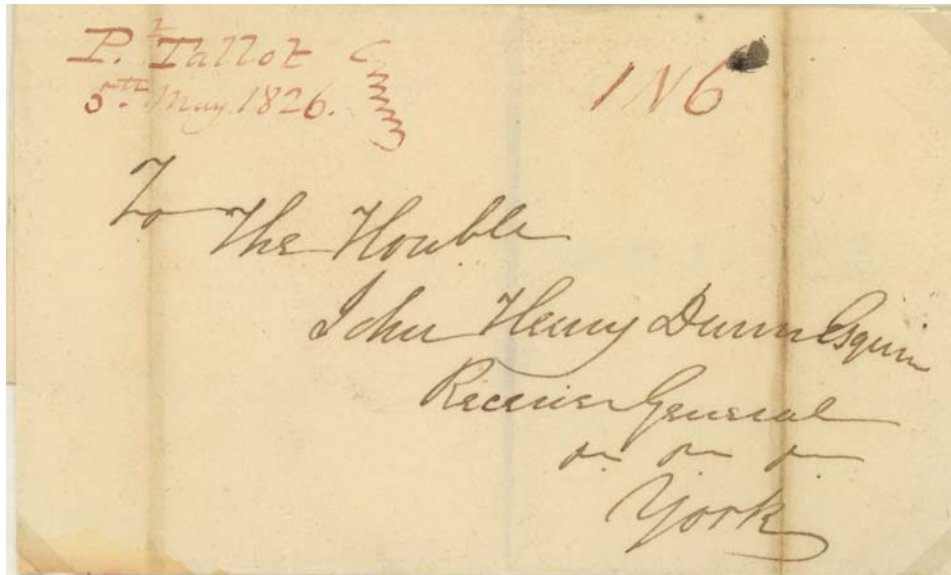 P.t Tallot
5th May 1826.
1N6
To
The Honble
John Henry Dunn Esquire
Receiver General
&c &c &c
York